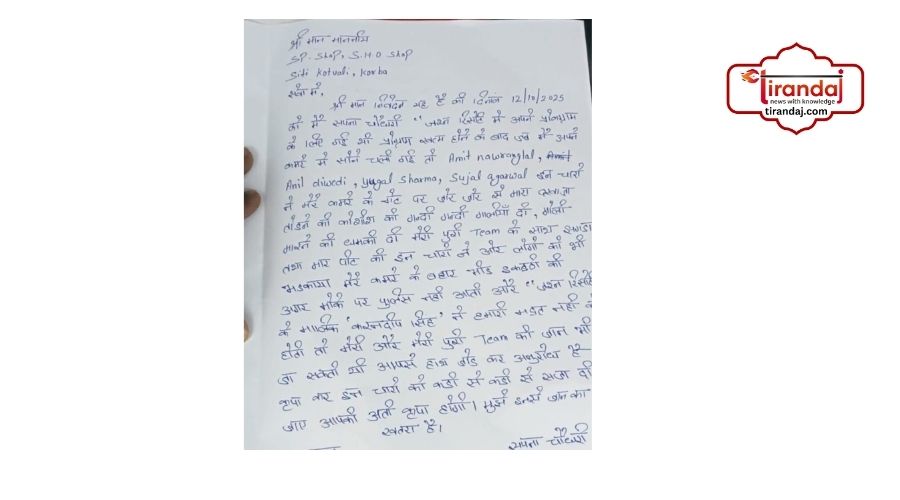 श्री मान माननीय
SP. Shop, S.H.O Shop
Siti Kotvali, Korba
सेवा में,
श्री मान निवेदन यह है की दिनांक 12/10/2025
को मैं सपना चौधरी "जश्न रिसोर्ट में अपने प्रोग्राम
के लिए गई थी प्रोग्राम खत्म होने के बाद जब मैं अपने
कमरे में सोने चली गई तो Amit nawrangglal,
Anil diwedi, yugal Sharma, Sujal agarwal इन चारों
ने मेरे कमरे के गेट पर जोर जोर से मारा दरवाजा
तोड़ने की कोशीश की गन्दी गन्दी गालीयाँ दी, गोली
मारने की धमकी दी मेरी पुरी Team के साथ झगड़ा
तथा मार पीट की इन चारों ने और लोगों को भी
भड़काया मेरे कमरे के बहार भीड इकठठी की
अगर मौके पर पुलिस नही आती और "जश्न रिसोर्ट
के मालिक 'करनदीप सिंह' ने हमारी मदद नही की
होती तो मेरी और मेरी पुरी Team की जान भी
जा सकती थी आपसे हाथ जोड़ कर अनुरोध है
कृपा कर इन चारों को कडी से कडी से सजा दी
जाए आपकी अती कृपा होगी। मुझे इनसे जान का
खतरा है।
सपना चौधरी
tirandaj
news with knowledge
tirandaj.com